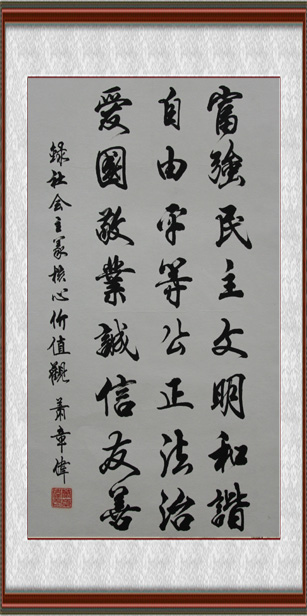 富強民主文明和諧
自由平等公正法治
愛國敬業誠信友善
錄社会主義核心价值觀 萧章煒